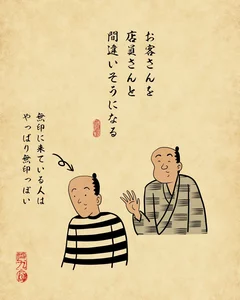 お客さんを
店員さんと
間違いそうになる
無印に来ている人は
やっぱり無印っぽい